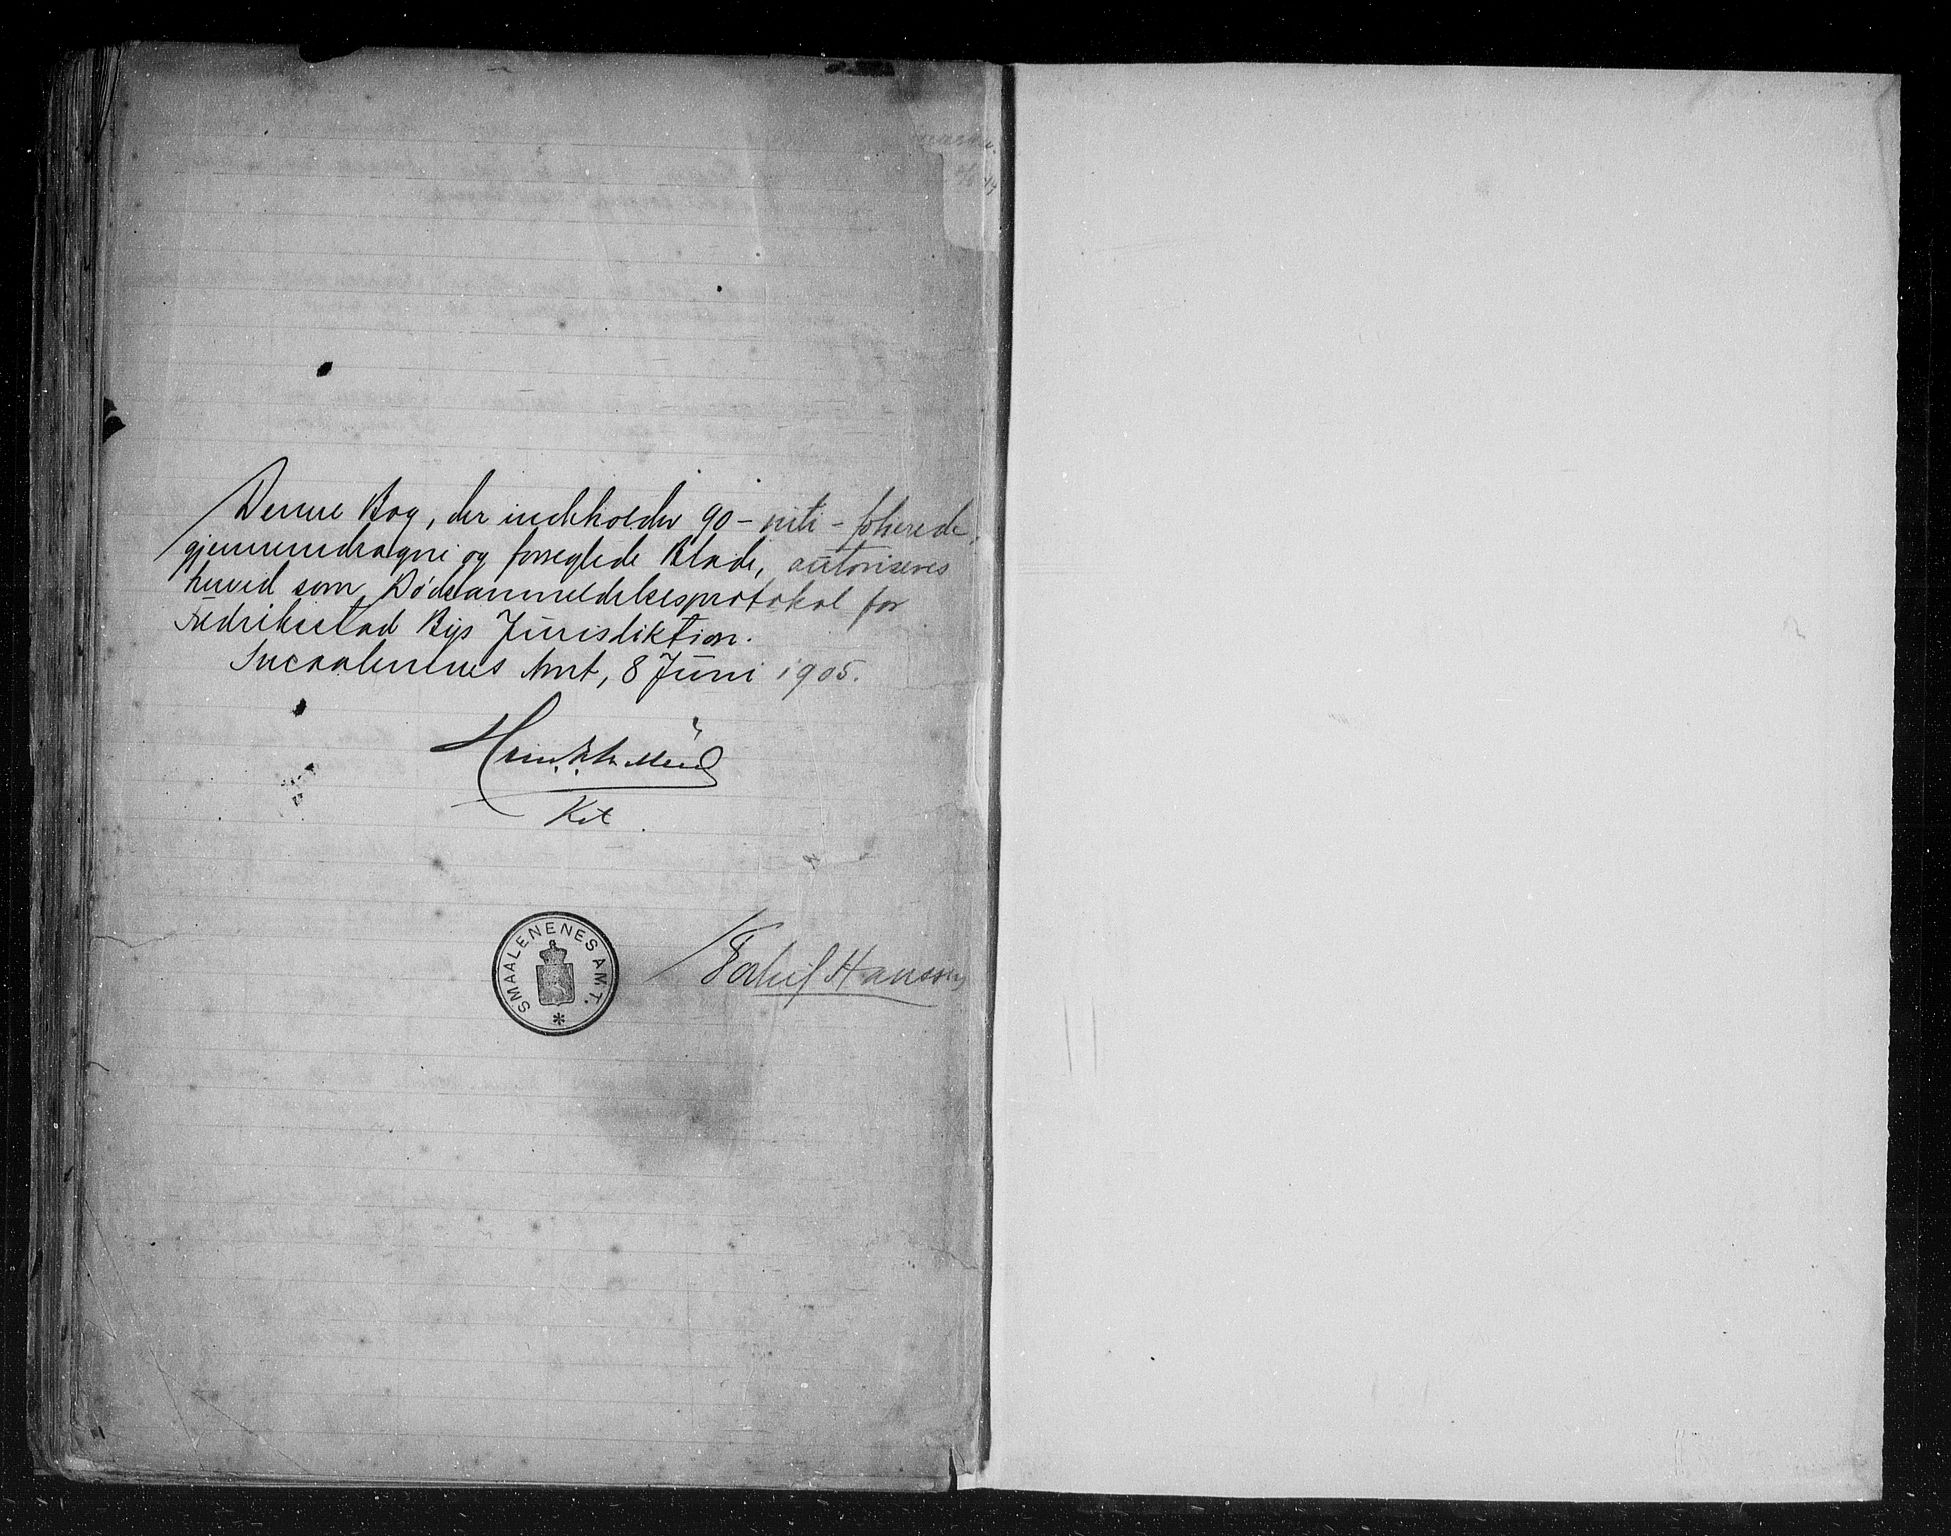 Denne Bog, der indeholder 90 - niti - folierede,
gjennemdragne og forseglede Blade, autoriseres
herved som Dødsanmeldelsesprotokol for
Fredriksstad Bys Jurisdiktion.
Smaalenenes Amt, 8 Juni 1905.
Kst.
SMAALENENES AMT.
Hanssen